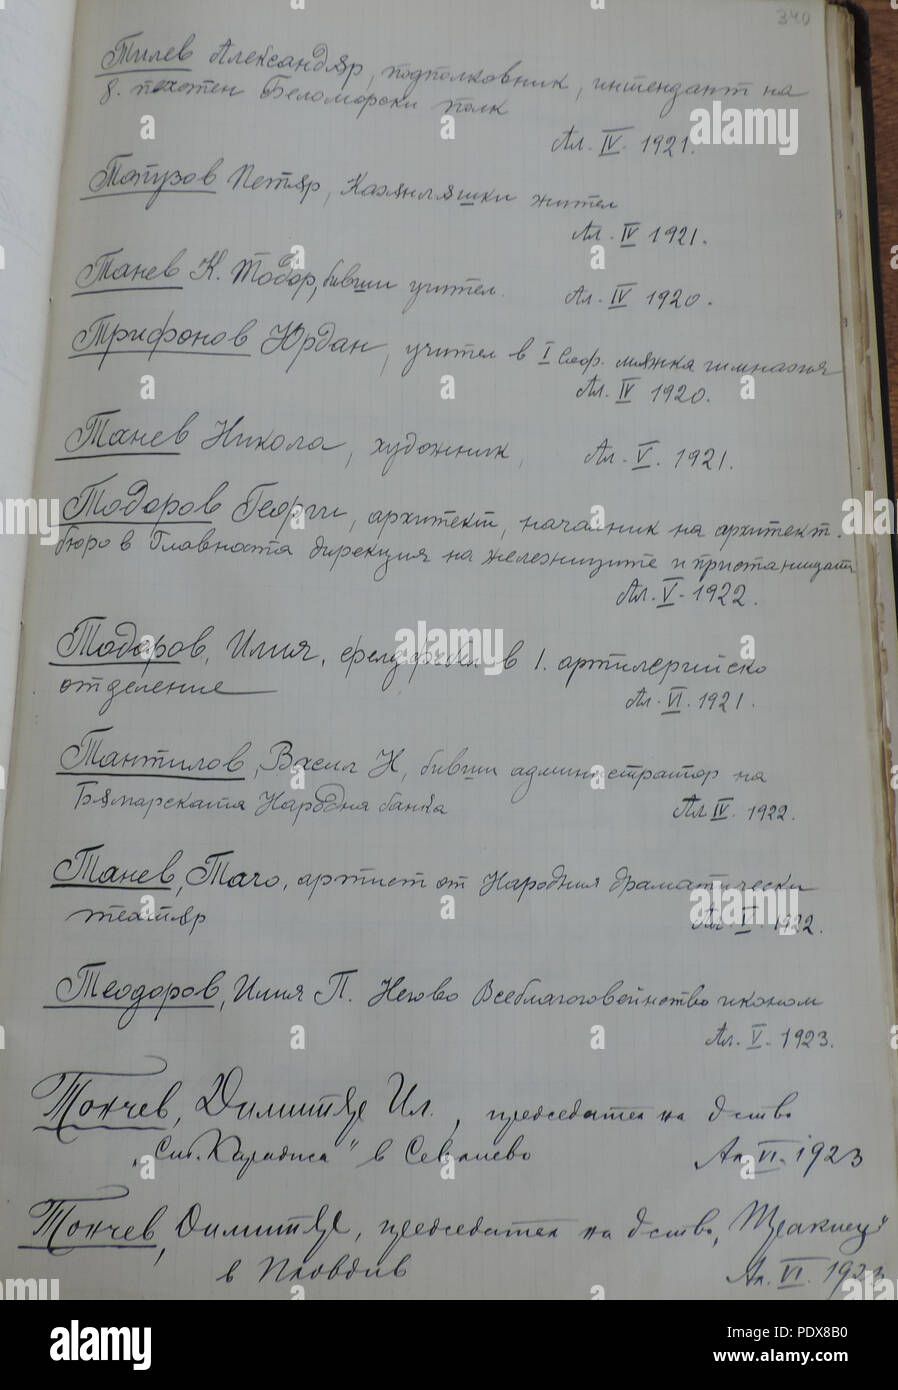 340
Тилев Александър, подполковник, интендант на
8. пехотен Беломорски полк
Ал. IV. 1921.
Тапузов Петър, Казанлъшки жител
Ал. IV 1921.
Танев К. Тодор, бивши учител.
Ал. IV 1920.
Трифонов Юрдан, учител в I Соф. мъжка гимназия
Ал. IV 1920.
Танев Никола, художник,
Ал. V. 1921.
Тодоров Георги, архитект, началник на архитект.
бюро в Главната дирекция на железниците и пристанищата
Ал. V. 1922.
Тодоров, Илия, фелдфебел в 1. артилерийско
отделение
Ал. VI. 1921.
Тантилов, Васил Н, бивши администратор на
Българската Народна банка
Ал IV. 1922.
Танев, Тачо, артист от Народния драматически
театър
Ал. V. 1922.
Теодоров, Илия П. Негово Всеблагоговейнство иконом
Ал. V. 1923.
Тончев, Димитър Ил., председател на д-ство
„Ст. Караджа" в Севлиево
Ал. VI. 1923
Тончев, Димитър, председател на д-ство, Тракиец"
в Пловдив
Ал. VI. 1923
alamy
alamy
Image ID: PDX8B0
www.alamy.com